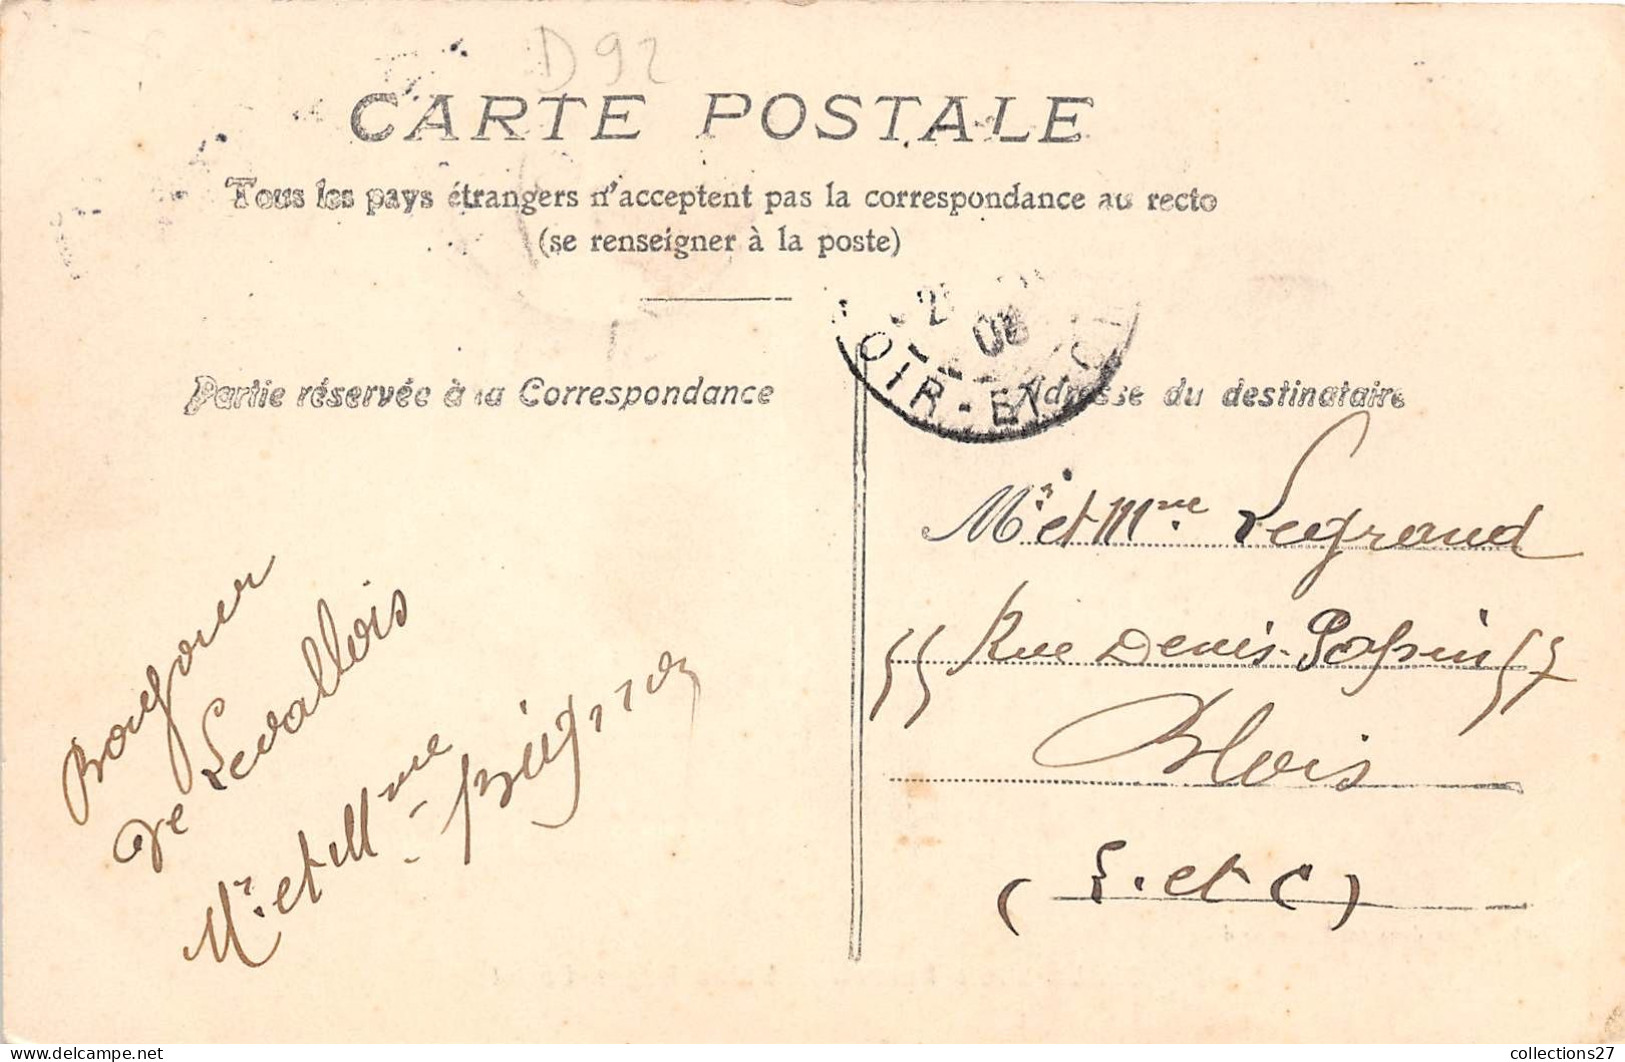 D92
CARTE POSTALE
Tous les pays étrangers n'acceptent pas la correspondance au recto
(se renseigner à la poste)
Partie réservée à la Correspondance
Adresse du destinataire
08
OIR-ET-C
Bonjour
de Levallois
Mr. et Mme
Mr et Mme Legrand
55 Rue Denis-Papin 57
Blois
(L. et C)
collections27